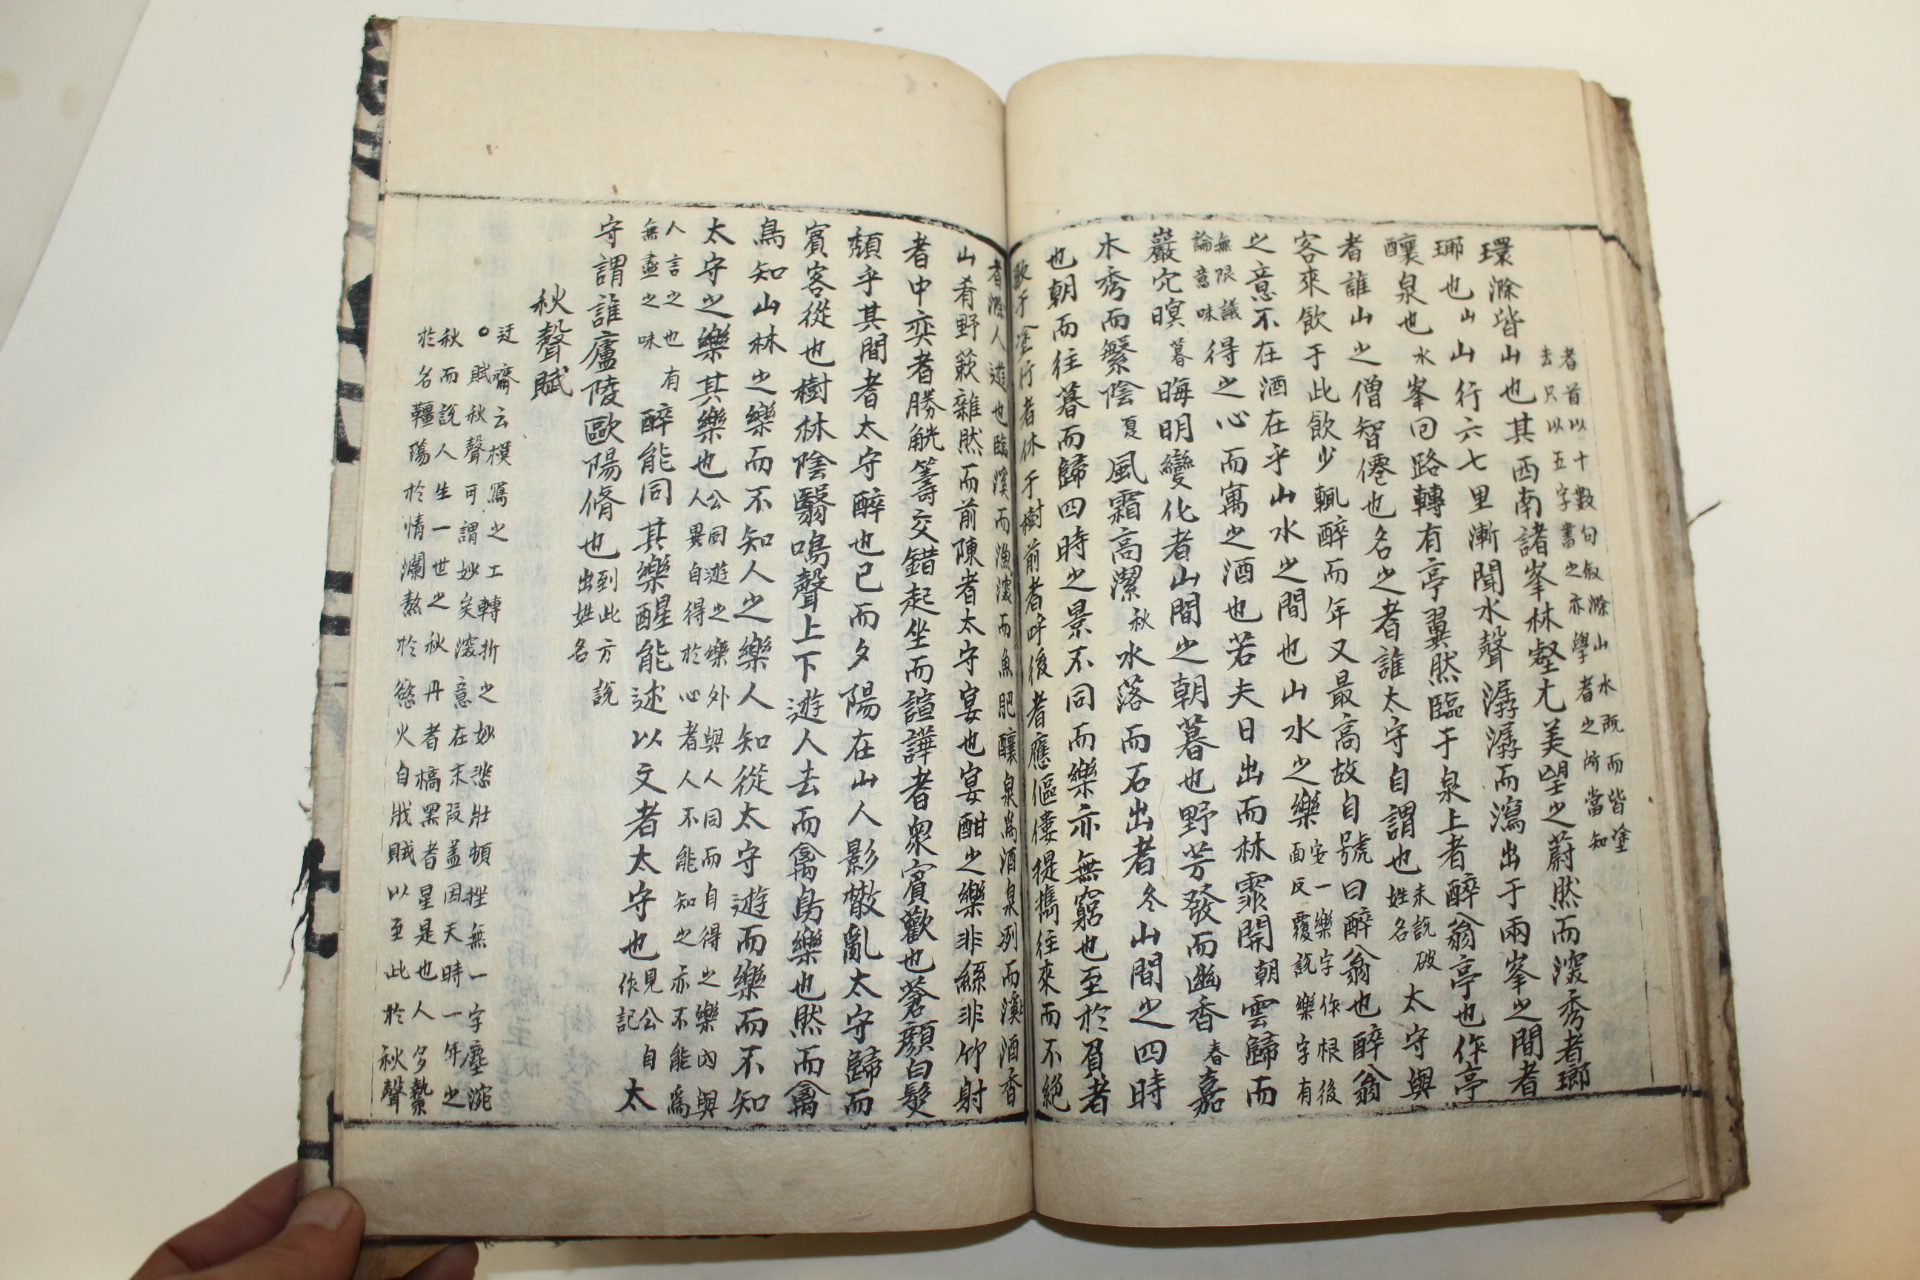 者首以十數句叙滁山水既而皆塗
去只以五字書之亦學者之所當知
環滁皆山也其西南諸峯林壑尤美望之蔚然而深秀者瑯
琊也山山行六七里漸聞水聲潺潺而瀉出于兩峯之間者
釀泉也水峯回路轉有亭翼然臨于泉上者醉翁亭也作亭
者誰山之僧智僊也名之者誰太守自謂也未說破姓名太守與
客來飲于此飲少輒醉而年又最高故自號曰醉翁也醉翁
之意不在酒在乎山水之間也山水之樂安一樂字作根後面反覆說樂字有
無限議論意味得之心而寓之酒也若夫日出而林霏開朝雲歸而
巖穴暝暮晦明變化者山間之朝暮也野芳發而幽香春嘉
木秀而繁陰夏風霜高潔秋水落而石出者冬山間之四時
也朝而往暮而歸四時之景不同而樂亦無窮也至於負者
歌于塗行者休于樹前者呼後者應傴僂提攜往來而不絕
者滁人遊也臨溪而漁溪深而魚肥釀泉爲酒泉冽而酒香
山肴野蔌雜然而前陳者太守宴也宴酣之樂非絲非竹射
者中奕者勝觥籌交錯起坐而諠譁者衆賓歡也蒼顏白髮
頹乎其間者太守醉也已而夕陽在山人影散亂太守歸而
賓客從也樹林陰翳鳴聲上下遊人去而禽鳥樂也然而禽
鳥知山林之樂而不知人之樂人知從太守遊而樂而不知
太守之樂其樂也公同遊之樂外與人同而自得之樂內與人異自得於心者人不能知之亦不能爲
人言之也有無盡之味醉能同其樂醒能述以文者太守也見公自作記太
守謂誰廬陵歐陽脩也到此方說出姓名
秋聲賦
迂齋云模寫之工轉折之妙悲壯頓挫無一字塵涴
○賦秋聲可謂妙矣深意在末段盖因天時一年之
秋而說人生一世之秋丹者槁黑者星是也人多縶
於名韁蕩於情瀾熬於慾火自戕賊以至此於秋聲